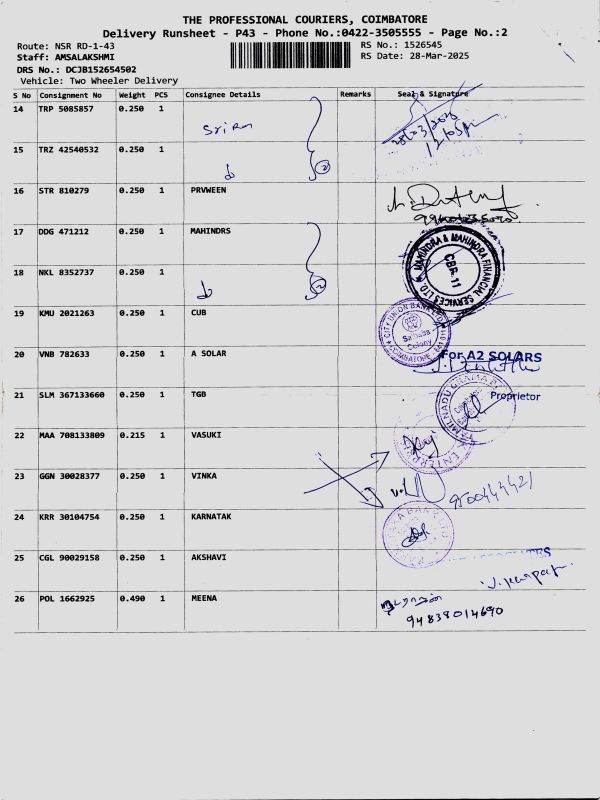 THE PROFESSIONAL COURIERS, COIMBATORE
Delivery Runsheet - P43 - Phone No.:0422-3505555 - Page No.:2
Route: NSR RD-1-43
RS No.: 1526545
Staff: AMSALAKSHMI
RS Date: 28-Mar-2025
DRS No.: DCJB152654502
Vehicle: Two Wheeler Delivery
S No Consignment No Weight PCS Consignee Details Remarks Seal & Signature
14 TRP 5085857 0.250 1
28/03/2025
15 TRZ 42540532 0.250 1
2
16 STR 810279 0.250 1 PRVWEEN
17 DDG 471212 0.250 1 MAHINDRS
MAHINDRA & MAHINDRA FINANCIAL SERVICES LTD.
CBR-11
18 NKL 8352737 0.250 1
2
19 KMU 2021263 0.250 1 CUB
CITY UNION BANK LTD
Saibaba
Colony
COIMBATORE
20 VNB 782633 0.250 1 A SOLAR
For A2 SOLARS
21 SLM 367133660 0.250 1 TGB
Proprietor
TAMILNADU GRAMA BANK
22 MAA 708133809 0.215 1 VASUKI
23 GGN 30028377 0.250 1 VINKA
24 KRR 30104754 0.250 1 KARNATAK
25 CGL 90029158 0.250 1 AKSHAVI
26 POL 1662925 0.490 1 MEENA
நடராஜன்
94838014690